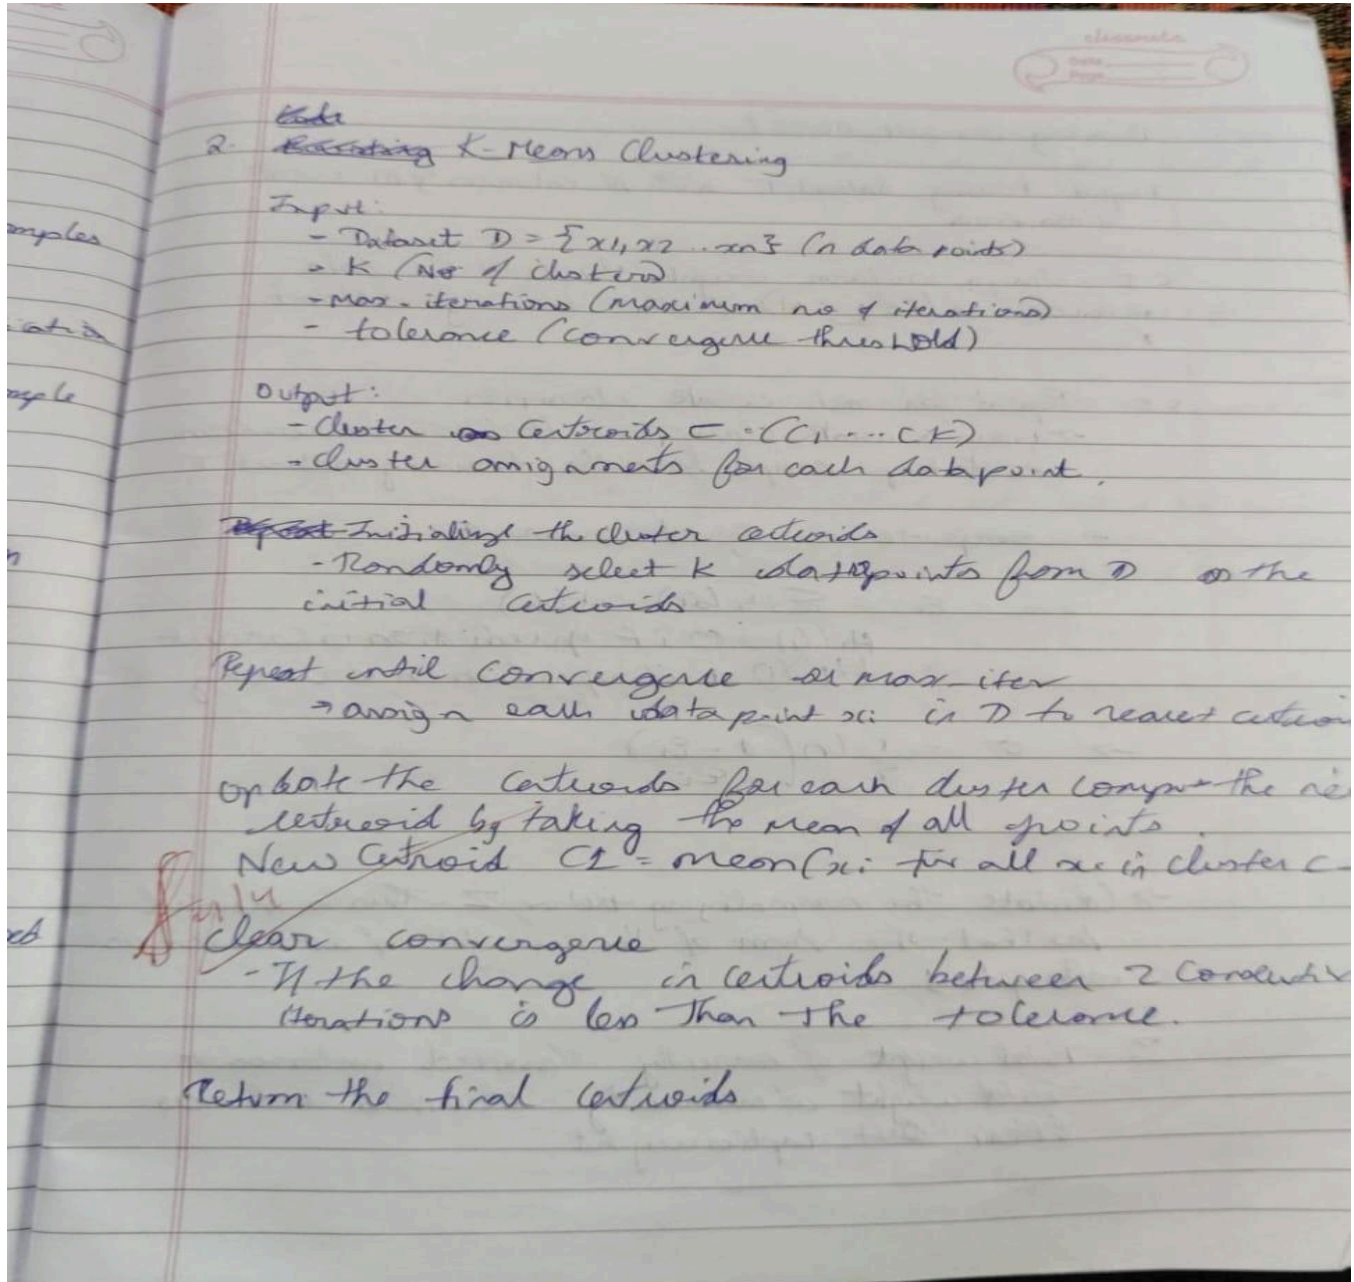 classmate
Date
Page
Code
2. K-Means Clustering
Input:
- Dataset D = {x1, x2 .. xn} (n data points)
- K (No of clusters)
- Max-iterations (maximum no of iterations)
- tolerance (convergence threshold)
Output:
- Cluster Centroids C - (C1 ... CK)
- cluster assignments for each datapoint.
Repeat Initialize the cluster centroids
- Randomly select K datapoints from D as the
initial centroids
Repeat until convergence or max-iter
→ assign each data point xi in D to nearest
Update the centroids for each cluster compute the ne
centroid by taking the mean of all points.
New Centroid C1 = mean(xi for all xi in cluster C
clear convergence
- If the change in centroids between 2
iterations is less than the tolerance.
Return the final centroids
mples